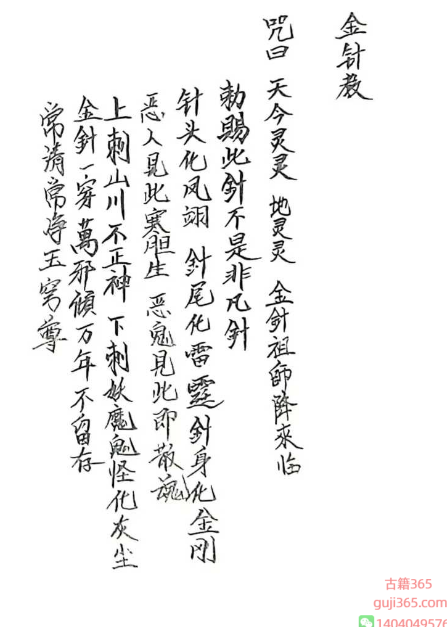 金针教
咒曰 天今灵灵 地灵灵 金針祖師降來临
勅賜此針不是非凡針
针头化凤翊 針尾化雷霆 針身化金刚
恶人見此寒胆生 恶鬼見此即散魂
上刺山川不正神 下刺妖魔鬼怪化灰尘
金針一穿萬邪傾 万年不留存
常清常净玉穹尊
古籍365
guji365.com
1404049576